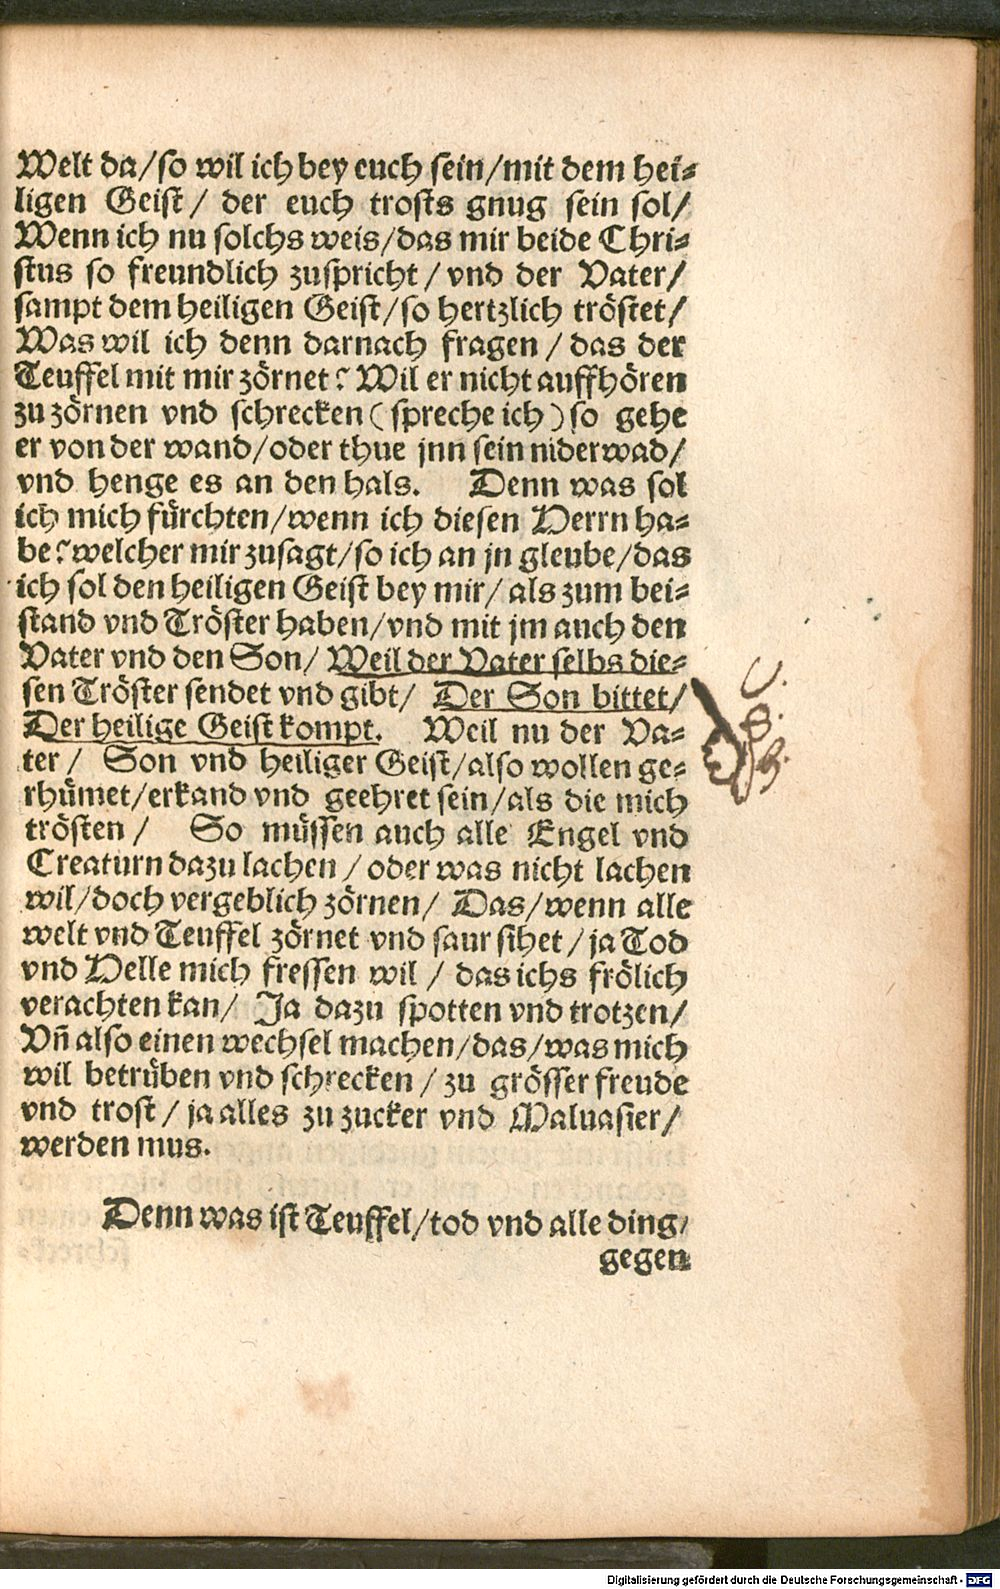 Welt da/so wil ich bey euch sein/mit dem hei⸗
ligen Geist/ der euch trosts gnug sein sol/
Wenn ich nu solchs weis/das mir beide Chri⸗
stus so freundlich zuspricht/vnd der Vater/
sampt dem heiligen Geist/so hertzlich tröstet/
Was wil ich denn darnach fragen/das der
Teuffel mit mir zörnet? Wil er nicht auffhören
zu zörnen vnd schrecken (spreche ich) so gehe
er von der wand/oder thue jnn sein niderwad/
vnd henge es an den hals. Denn was sol
ich mich fürchten/wenn ich diesen Herrn ha⸗
be? welcher mir zusagt/so ich an jn gleube/das
ich sol den heiligen Geist bey mir/als zum bei⸗
stand vnd Tröster haben/vnd mit jm auch den
Vater vnd den Son/ Weil der Vater selbs die⸗
sen Tröster sendet vnd gibt/ Der Son bittet/
Der heilige Geist kompt. Weil nu der Va⸗
ter/ Son vnd heiliger Geist/also wollen ge⸗
rhümet/erkand vnd geehret sein/als die mich
trösten/ So müssen auch alle Engel vnd
Creaturn dazu lachen/oder was nicht lachen
wil/doch vergeblich zörnen/ Das/wenn alle
welt vnd Teuffel zörnet vnd saur sihet/ja Tod
vnd Helle mich fressen wil/das ichs frölich
verachten kan/ Ja dazu spotten vnd trotzen/
Vñ also einen wechsel machen/das/was mich
wil betrüben vnd schrecken/zu grösser freude
vnd trost/ja alles zu zucker vnd Maluasier/
werden mus.
Denn was ist Teuffel/tod vnd alle ding/
gegen
Digitalisierung gefördert durch die Deutsche Forschungsgemeinschaft - DFG